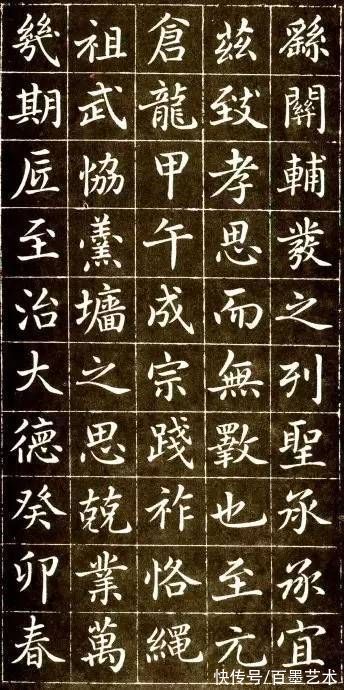 繇關輔發之列聖承承宜
茲致孝思而無斁也至元
倉龍甲午成宗踐祚恪繩
祖武恊羹墻之思兢業萬
幾期厎至治大德癸卯春
快传号/百墨艺术